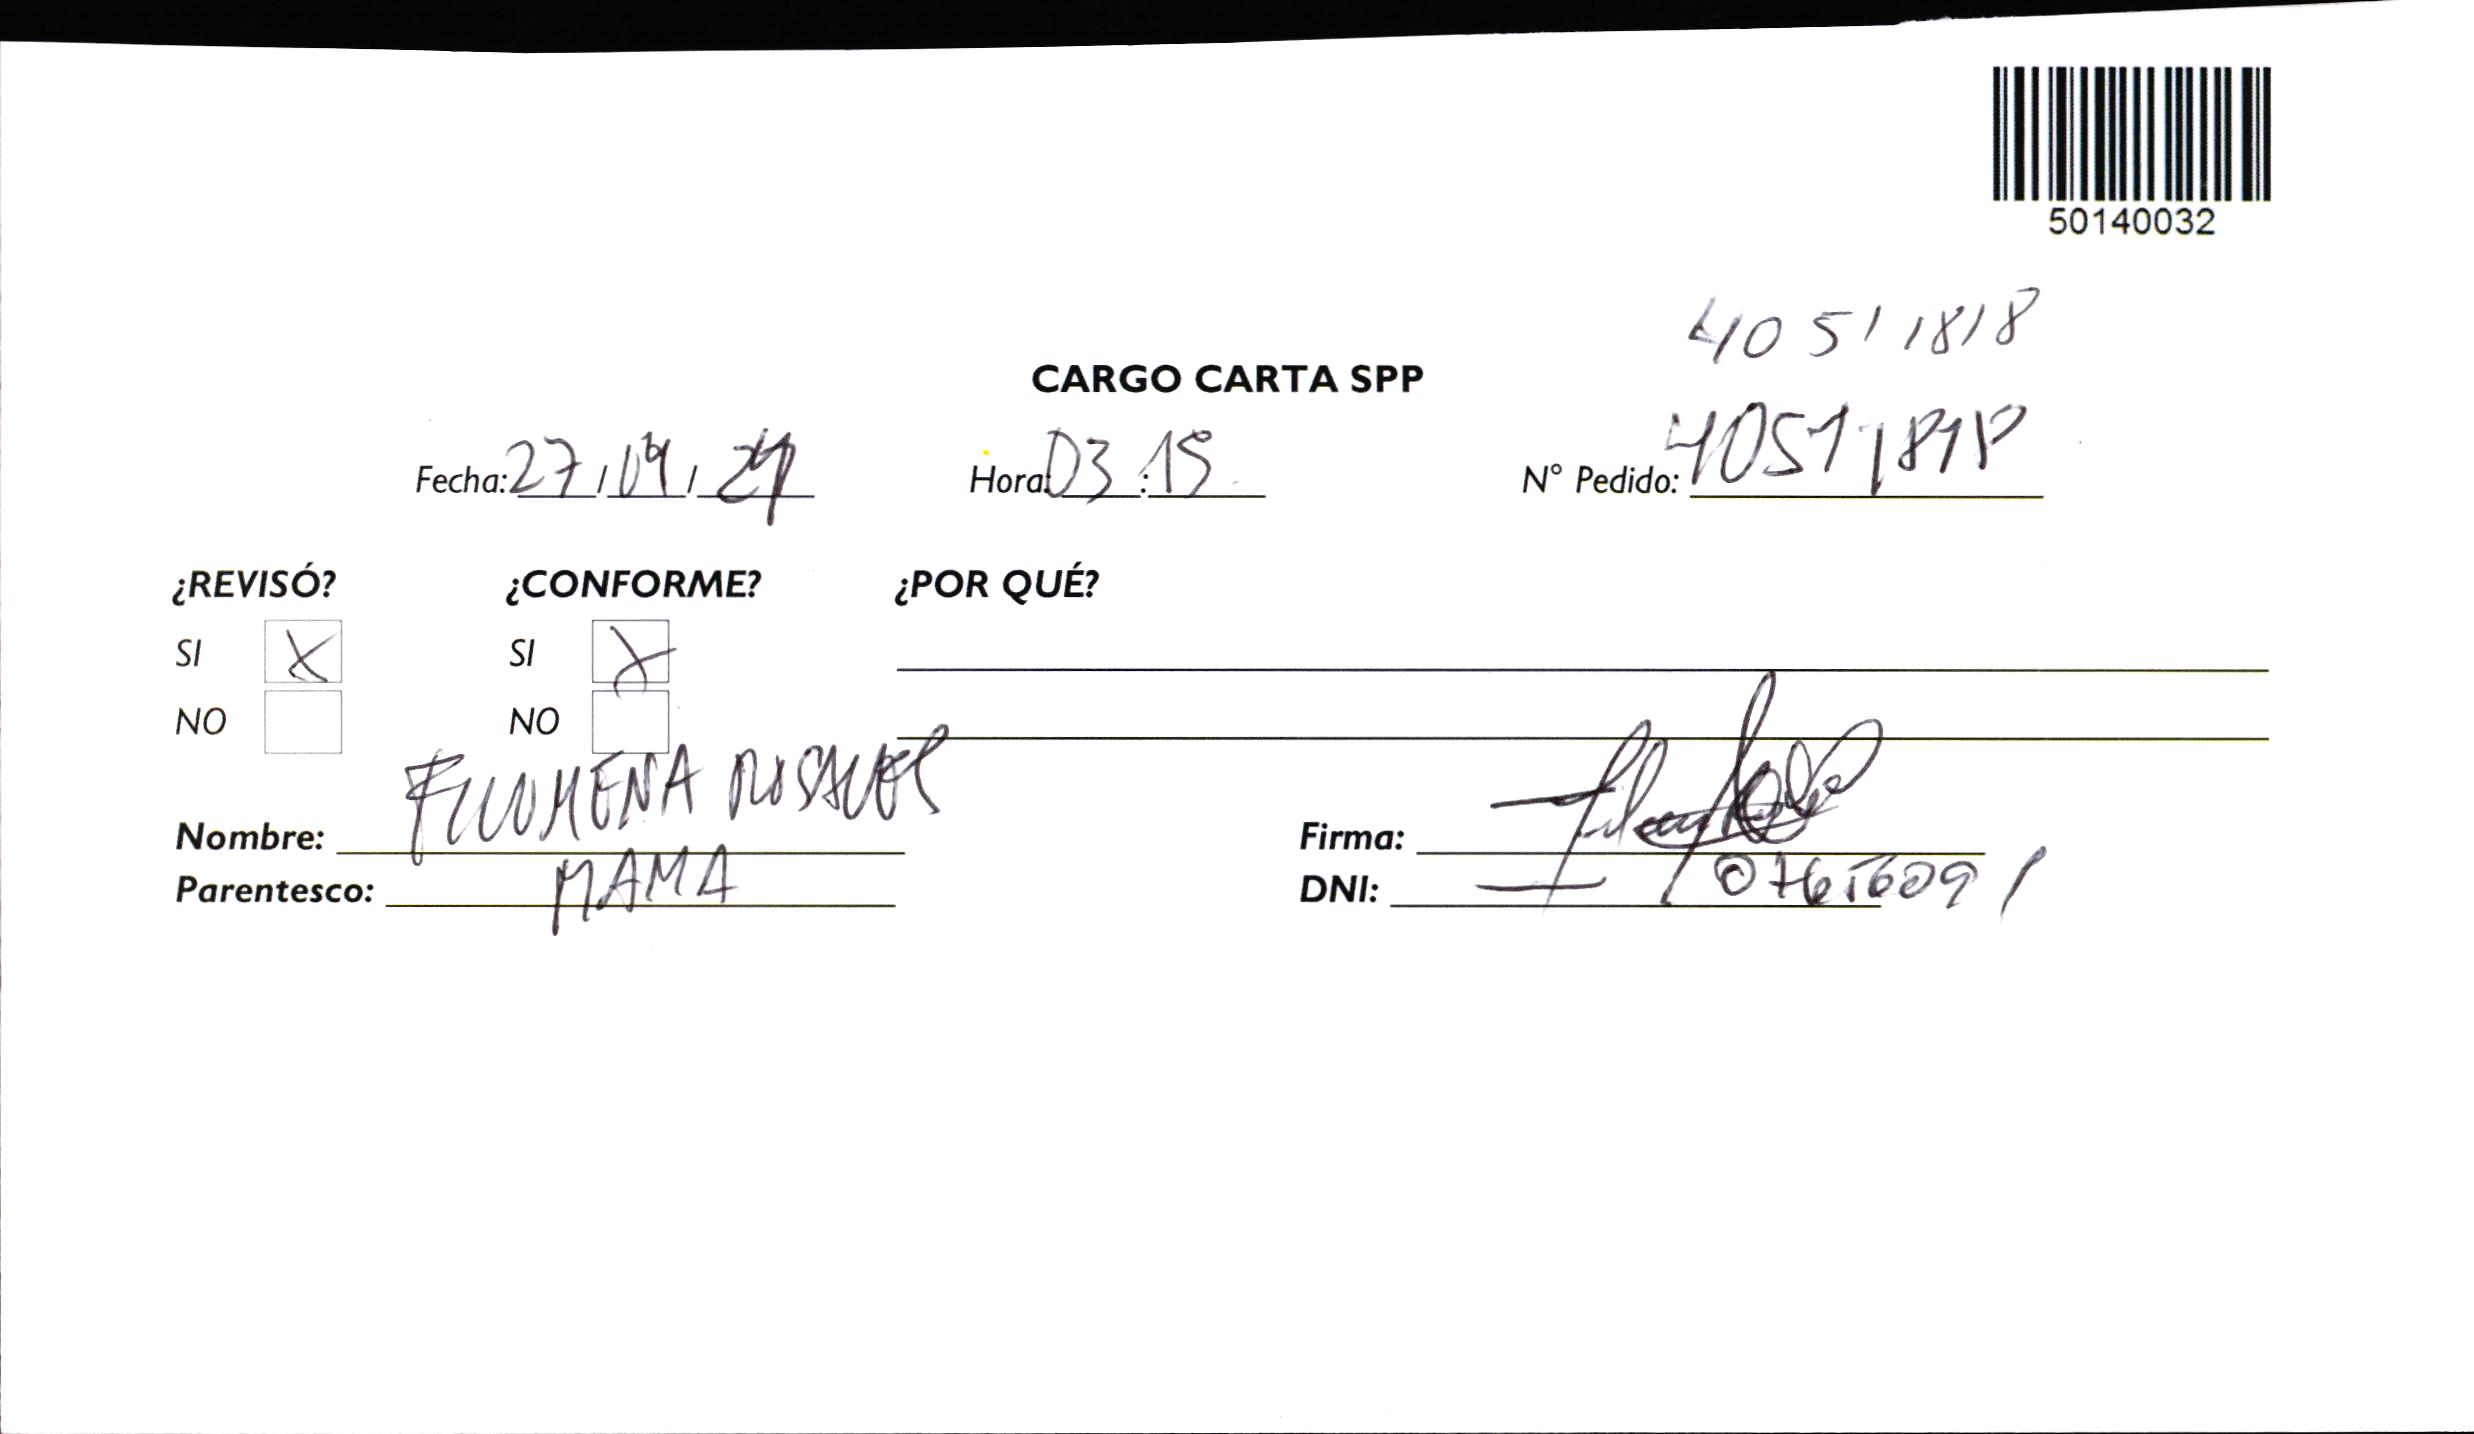 50140032
40511818
CARGO CARTA SPP
Fecha: 27/09/21 Hora: 03:15 N° Pedido: 40511818
¿REVISÓ? ¿CONFORME? ¿POR QUÉ?
SI X SI X
NO NO
Nombre: FILOMENA ROSALES
Parentesco: MAMA
Firma:
DNI: 07656091